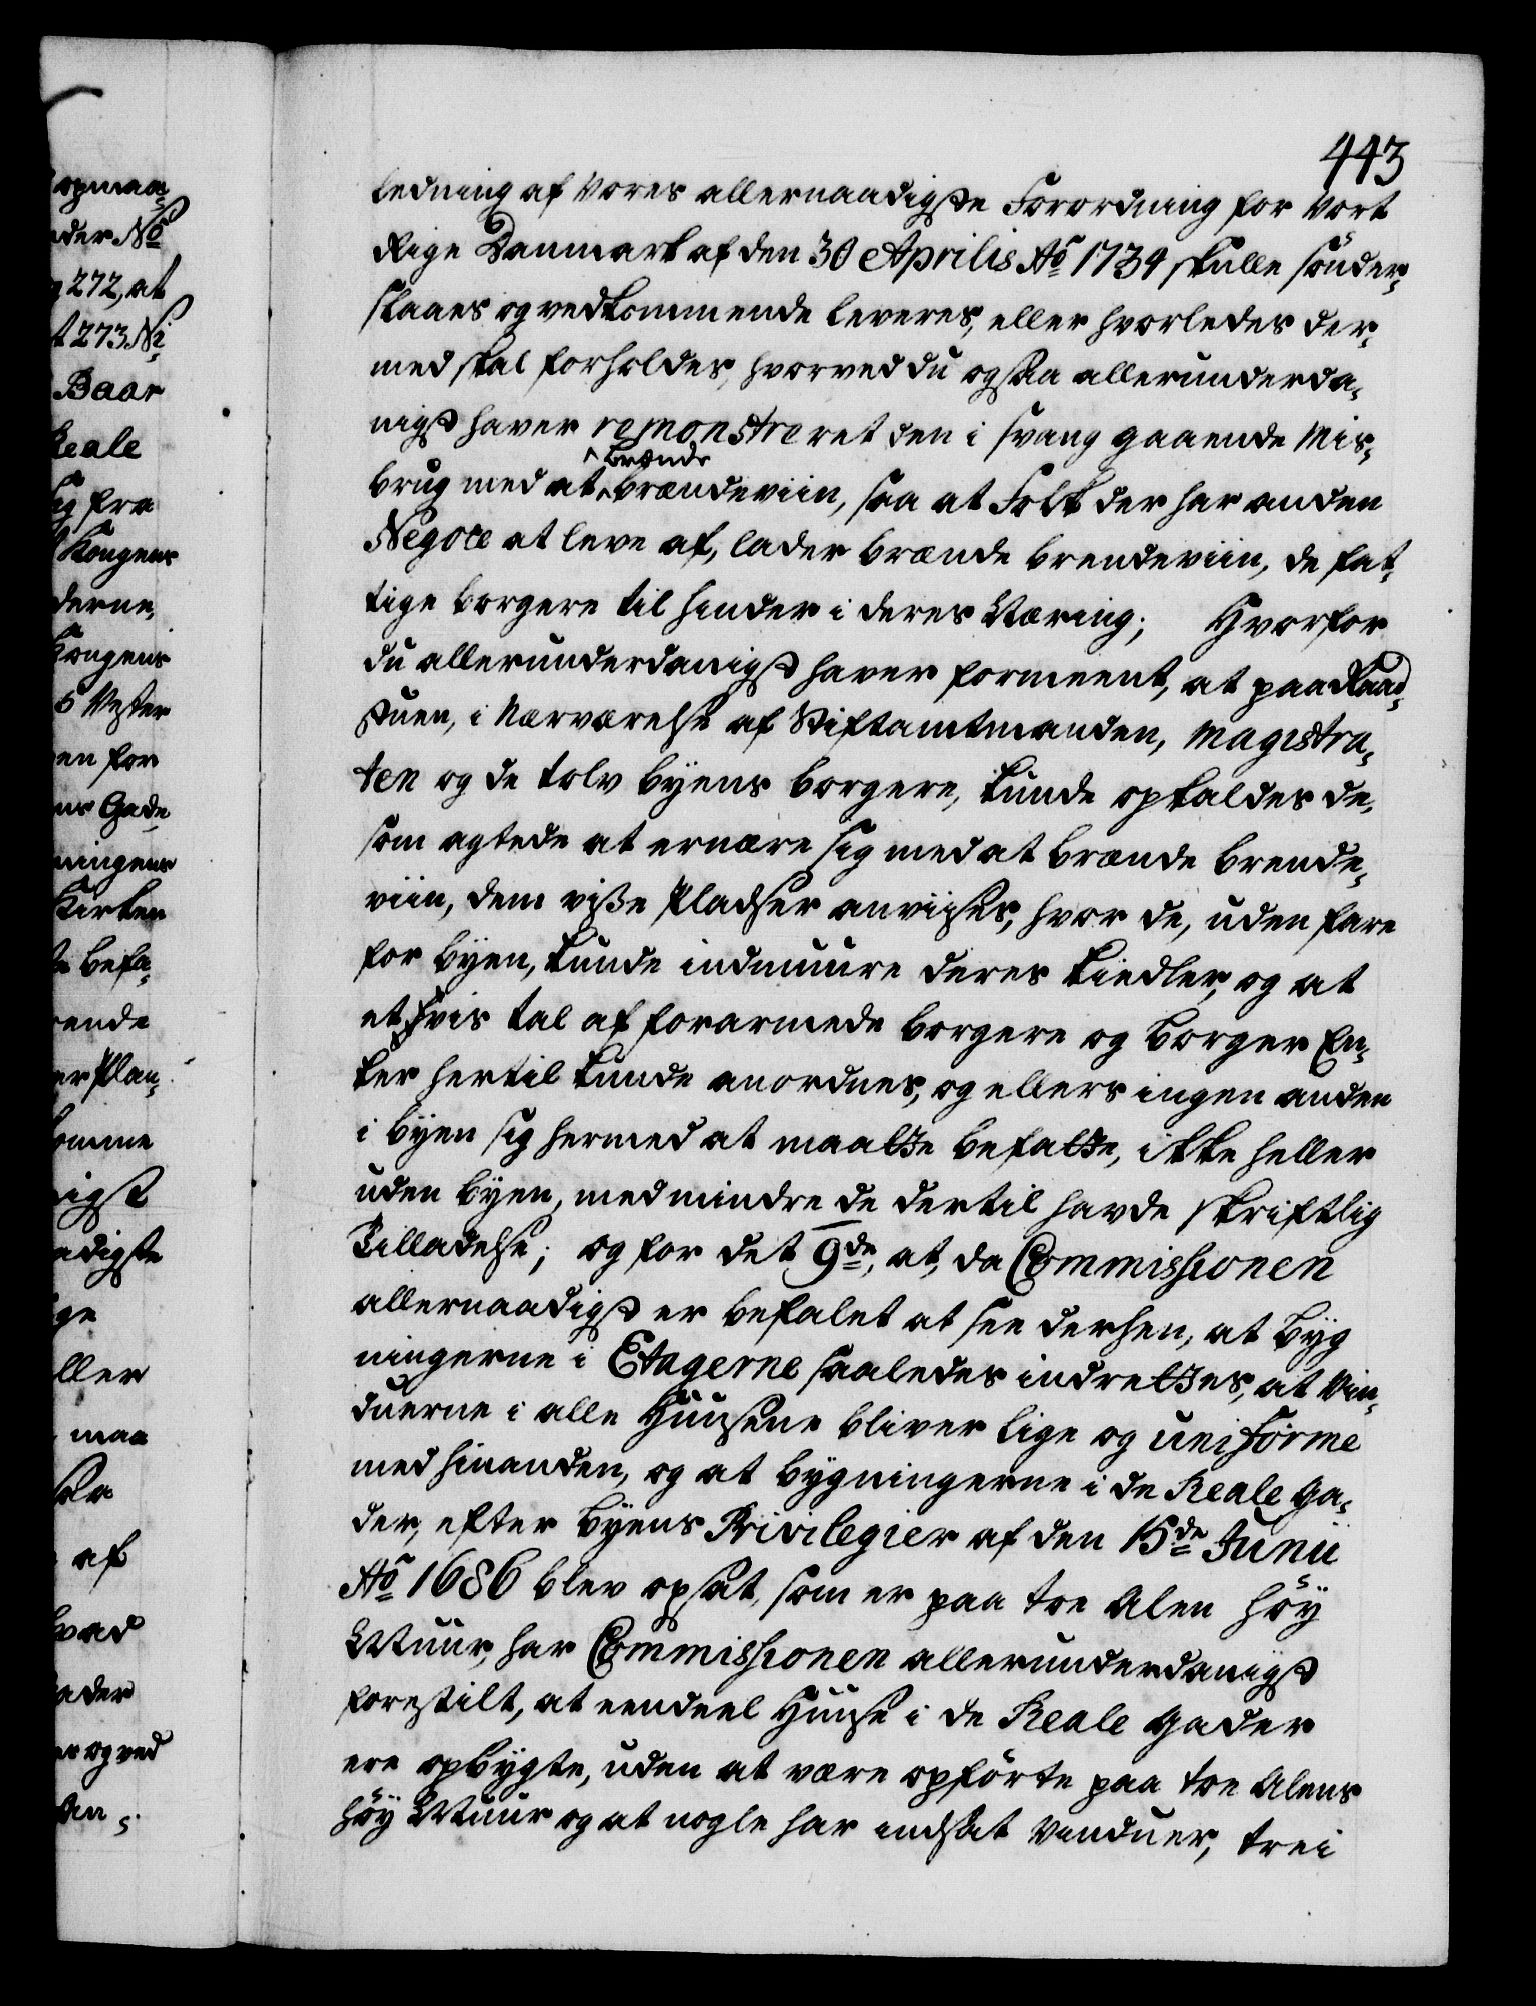 443
ledning af Vores allernaadigste Forordning for Vort
Rige Danmark af den 30 Aprilis Ao 1734 skulle sönder-
slaaes og vedkommende leveres, eller hvorledes der-
med skal forholdes, hvorved du ogsaa allerunderda-
nigst haver remonstreret den i svang gaaende Mis-
brænde
brug med at brændeviin, saa at Folk der har anden
Negoce at leve af, lader brænde brendeviin, de fat-
tige borgere til hinder i deres Næring; Hvorfor
du allerunderdanigst haver formeent, at paa Raad-
stuen, i Nærværelse af Stiftamtmanden, Magistra-
ten og de tolv byens borgere, kunde opkaldes de,
som agtede at ernære sig med at brænde brende-
viin, dem visse Pladser anviises, hvor de, uden fare
for byen, kunde indmuure deres Kiedler, og at
et vis tal af forarmede borgere og borger En-
ker hertil kunde anordnes, og ellers ingen anden
i byen sig hermed at maatte befatte, ikke heller
uden byen, med mindre de dertil havde skriftlig
Tilladelse; og for det 9de, at, da Commissionen
allernaadigst er befalet at see derhen, at byg
ningerne i Etagerne saaledes indrettes, at Vin-
duerne i alle Huusene bliver lige og uniforme
med hinanden, og at bygningerne i de Reale Ga-
der, efter byens Privilegier af den 15de Junii
Ao 1686 blev opsat, som er paa toe Alen höy
Muur, har Commissionen allerunderdanigst
forestilt, at eendeel Huuse i de Reale Gader
ere opbygte, uden at være opförte paa toe Alens
höy Muur og at nogle har indsat Vinduer, trei
opmaa-
der No
272, at
273 Ni-
Baar
Reale
fra
Kongens
derne,
Kongens
Vester
en for
ns Gade
ningens
Kirken
befa-
ende
er Plan-
omme
igst
adigste
ge
ller
maa
af
vad
ader
er og ved